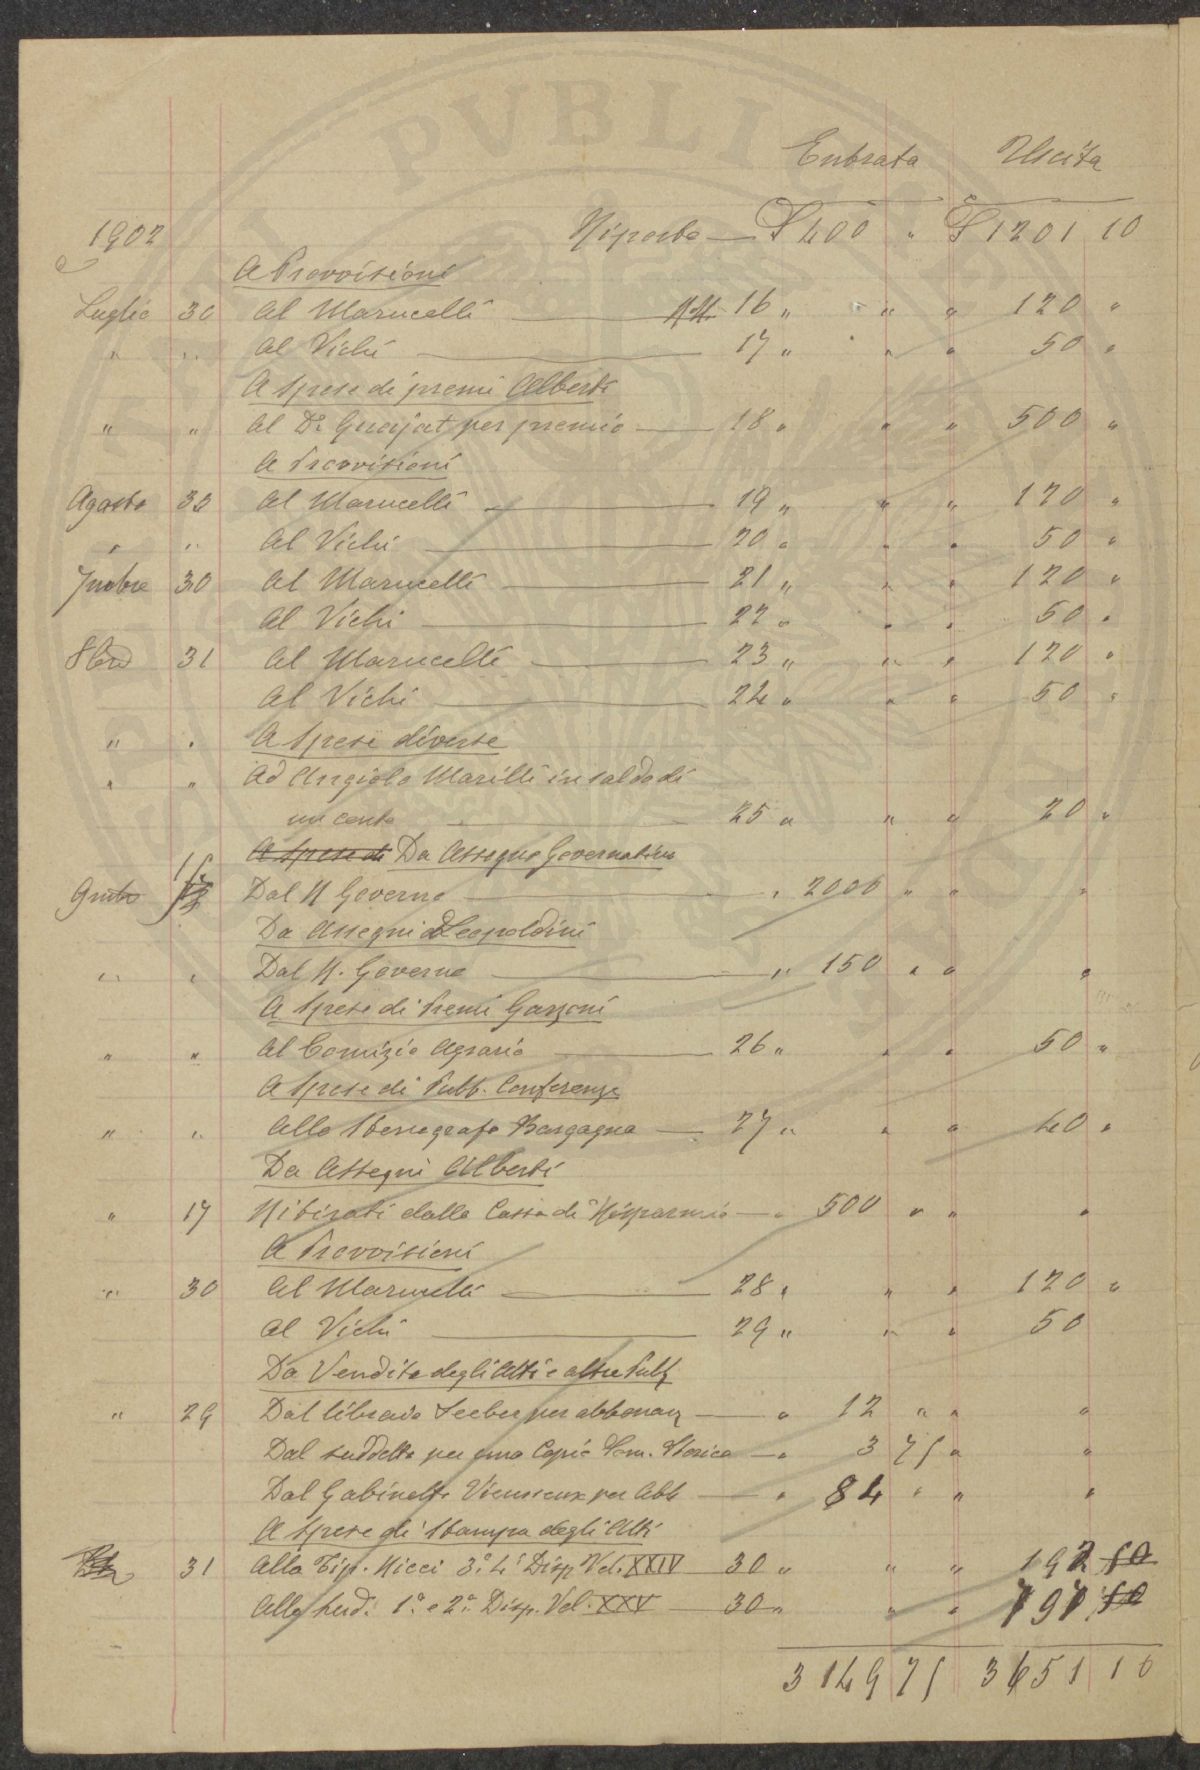 PVBLI
Entrata Uscita
1902 Riporto £ 400 " £ 1201 10
A Provvisioni
Luglio 30 Al Marucelli 16 " " " 120 "
" " Al Vichi 17 " " " 50 "
A Spese di premi Alberti
" " Al Dr per premio 18 " " " 500 "
A Provvisioni
Agosto 30 Al Marucelli 19 " " " 120 "
" " Al Vichi 20 " " " 50 "
7mbre 30 Al Marucelli 21 " " " 120 "
Al Vichi 22 " " " 50 "
8bre 31 Al Marucelli 23 " " " 120 "
Al Vichi 24 " " " 50 "
" " A Spese diverse
" " Ad Angiolo Marilli in saldo di
un conto 25 " " " 20 "
A Spese di Da Assegno Governativo
Dal R Governo " 2000 " " "
Da Assegni Leopoldini
" " Dal R. Governo " 150 " " "
A Spese di Premi Garzoni
" " Al Comizio Agrario 26 " " " 50 "
A Spese di Pubb. Conferenze
" " Allo Stenografo Bargagna 27 " " " 40 "
Da Assegni Alberti
" 17 Ritirati dalla Cassa di Risparmio " 500 " " "
A Provvisioni
" 30 Al Marucelli 28 " " " 120 "
Al Vichi 29 " " " 50
Da Vendita degli Atti e altre Pubb
" 29 Dal libraio Seeber per abbonam " 12 " " "
Dal suddetto per una Copia Som. Storico " 3 75 " "
Dal Gabinetto Vieusseux per Abb " 84 " " "
A Spese di Stampa degli Atti
31 Alla Tip. Ricci 3a 4a Disp. Vol. XXIV 30 " " " 192 50
Alla sud. 1a e 2a Disp. Vol. XXV 30 " " " 197 50
3149 75 3651 10